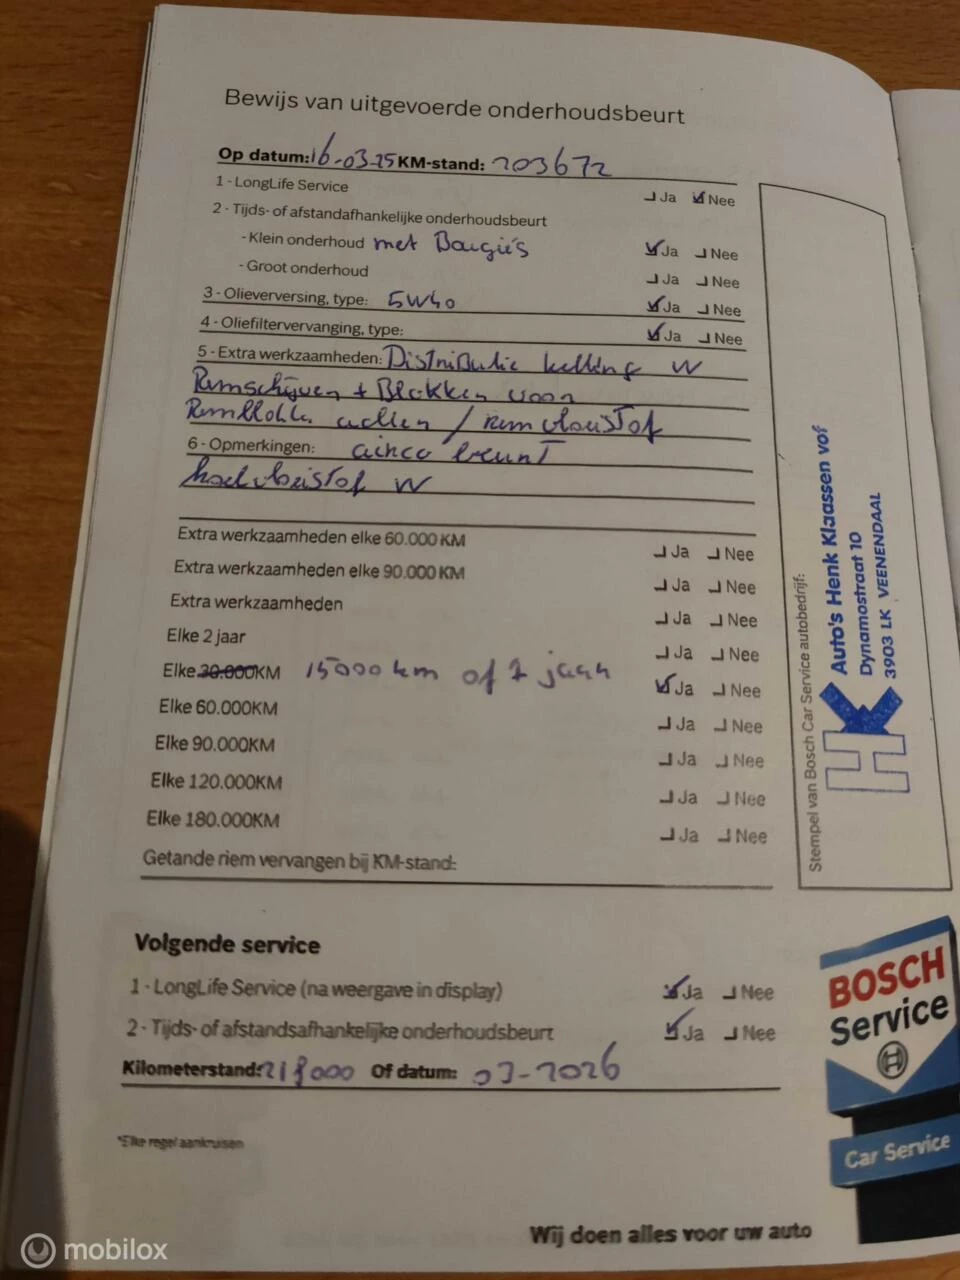 Bewijs van uitgevoerde onderhoudsbeurt
Op datum: 16-03-25 KM-stand: 203672
1 - LongLife Service Ja Nee
2 - Tijds- of afstandafhankelijke onderhoudsbeurt
- Klein onderhoud met Bougie's Ja Nee
- Groot onderhoud Ja Nee
3 - Olieverversing, type: 5W40 Ja Nee
4 - Oliefiltervervanging, type: Ja Nee
5 - Extra werkzaamheden: Distributie ketting W
Remschijven + Blokken voor
Remblokken achter / remvloeistof
6 - Opmerkingen: airco beurt
koelvloeistof W
Extra werkzaamheden elke 60.000 KM Ja Nee
Extra werkzaamheden elke 90.000 KM Ja Nee
Extra werkzaamheden Ja Nee
Elke 2 jaar Ja Nee
Elke 30.000KM 15000 km of 1 jaar Ja Nee
Elke 60.000KM Ja Nee
Elke 90.000KM Ja Nee
Elke 120.000KM Ja Nee
Elke 180.000KM Ja Nee
Getande riem vervangen bij KM-stand:
Stempel van Bosch Car Service autobedrijf:
HK
Auto's Henk Klaassen vof
Dynamostraat 10
3903 LK VEENENDAAL
Volgende service
1 - LongLife Service (na weergave in display) Ja Nee
2 - Tijds- of afstandsafhankelijke onderhoudsbeurt Ja Nee
Kilometerstand: 218000 Of datum: 03-2026
*Elke regel aankruisen
BOSCH
Service
Car Service
Wij doen alles voor uw auto
mobilox